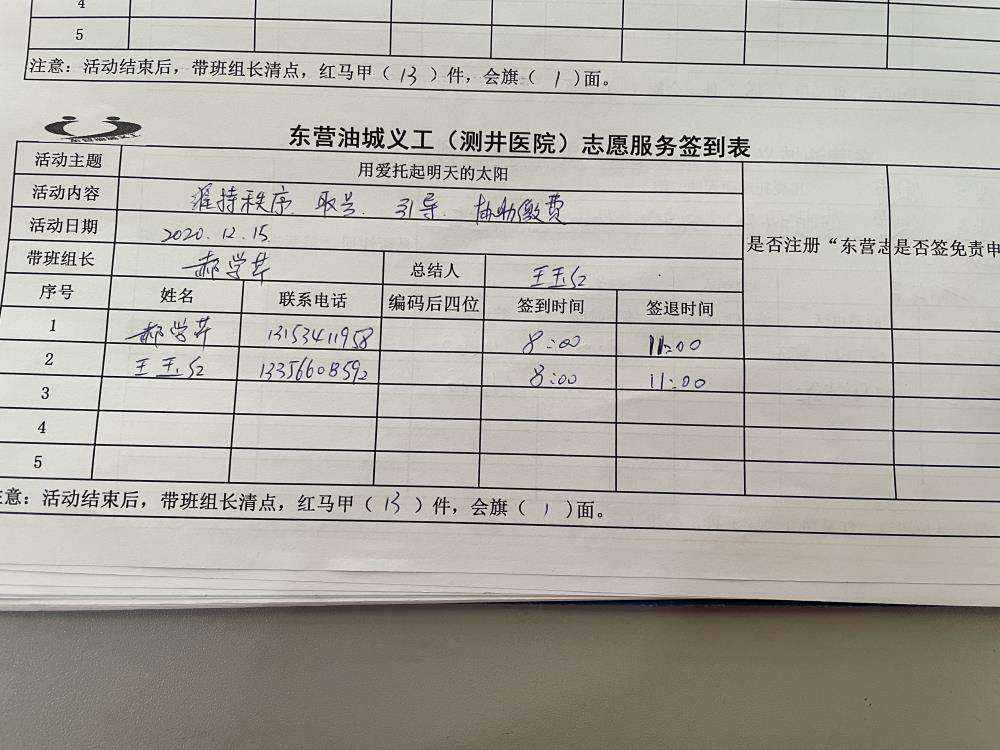 4
5
注意：活动结束后，带班组长清点，红马甲（13）件，会旗（1）面。
东营油城义工
东营油城义工（测井医院）志愿服务签到表
活动主题 用爱托起明天的太阳
活动内容 维持秩序、取号、引导、协助缴费
是否注册“东营志 是否签免责申
活动日期 2020.12.15.
带班组长 郝学芹 总结人 王玉红
序号 姓名 联系电话 编码后四位 签到时间 签退时间
1 郝学芹 13153411958 8:00 11:00
2 王玉红 13356608592 8:00 11:00
3
4
5
注意：活动结束后，带班组长清点，红马甲（13）件，会旗（1）面。